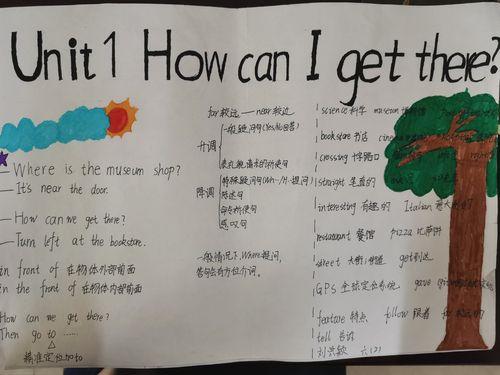 Unit 1 How can I get there?
— Where is the museum shop?
— It's near the door.
— How can we get there?
— Turn left at the bookstore.
in front of 在物体外部前面
in the front of 在物体内部前面
How can we get there?
Then go to ......
△
精准定位加to
far较远 — near较近
升调
一般疑问句(Yes/No回答)
表礼貌请求的祈使句
降调
特殊疑问句(Wh-/H-提问)
陈述句
命令祈使句
感叹句
一般情况下,Where提问,
答句会有方位介词。
science 科学 museum 博物馆
bookstore 书店 cinema
crossing 十字路口
straight 笔直的
interesting 有趣的 Italian 意大利的
restaurant 餐馆 pizza 比萨饼
street 大街;街道 get到达
GPS 全球定位系统 gave
feature 特点 follow 跟着 far
tell 告诉
刘洪敏 六(2)